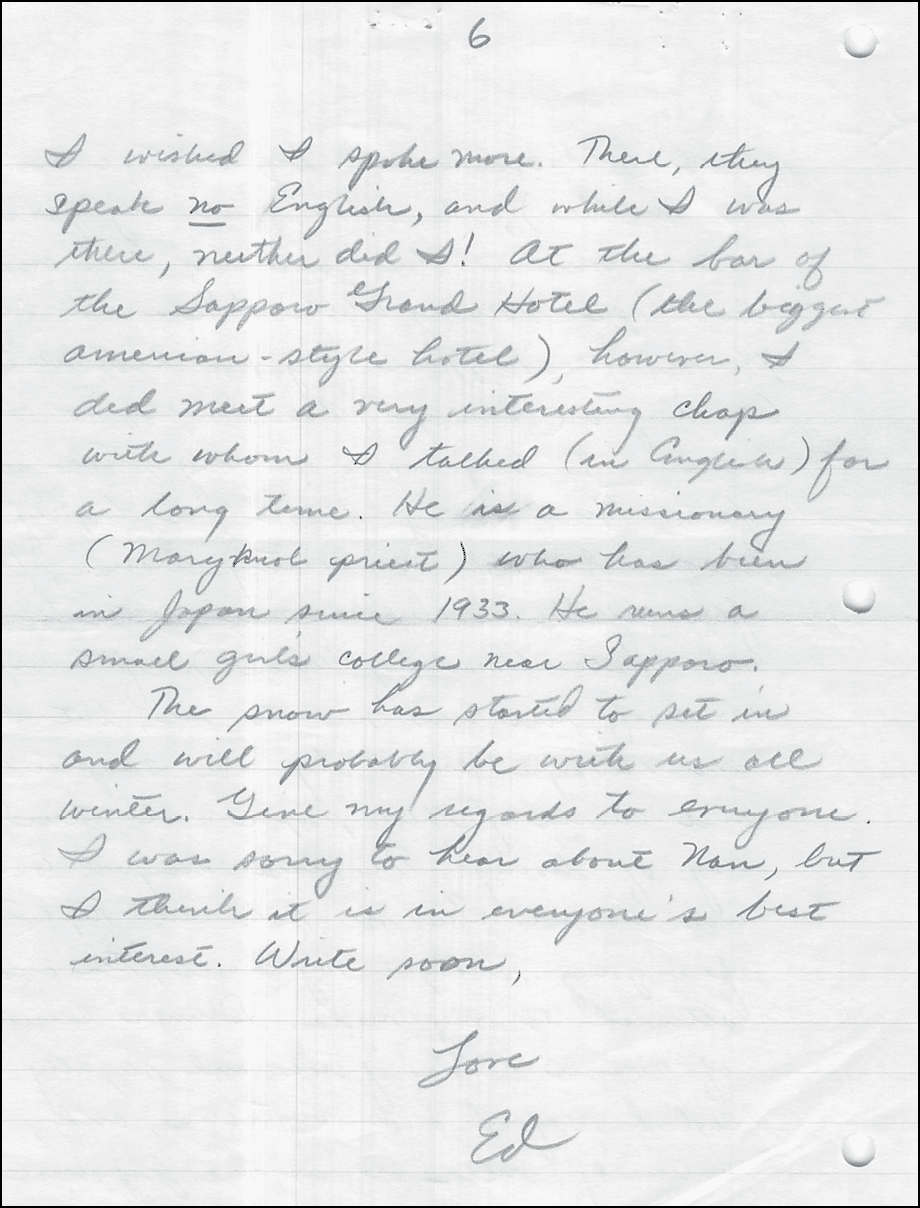 6
I wished I spoke more. There, they
speak no English, and while I was
there, neither did I! At the bar of
the Sapporo Grand Hotel (the biggest
american-style hotel), however, I
did meet a very interesting chap
with whom I talked (in English) for
a long time. He is a missionary
(Maryknol priest) who has been
in Japan since 1933. He runs a
small girls college near Sapporo.
The snow has started to set in
and will probably be with us all
winter. Give my regards to everyone.
I was sorry to hear about Nan, but
I think it is in everyone's best
interest. Write soon,
Love
Ed